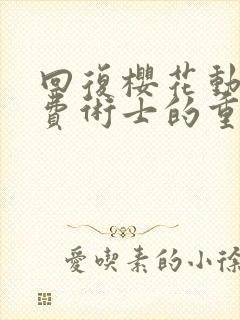 回復櫻花動
費術士的重
愛喫素的小徐